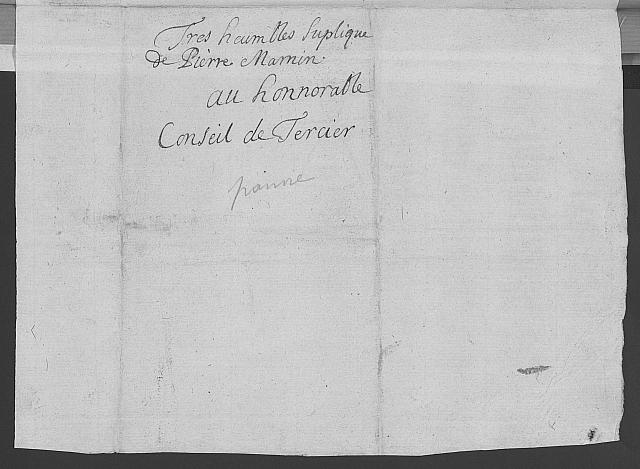 Tres heumbles Suplique
de Pierre Mamin
au honnorable
Conseil de Tercier